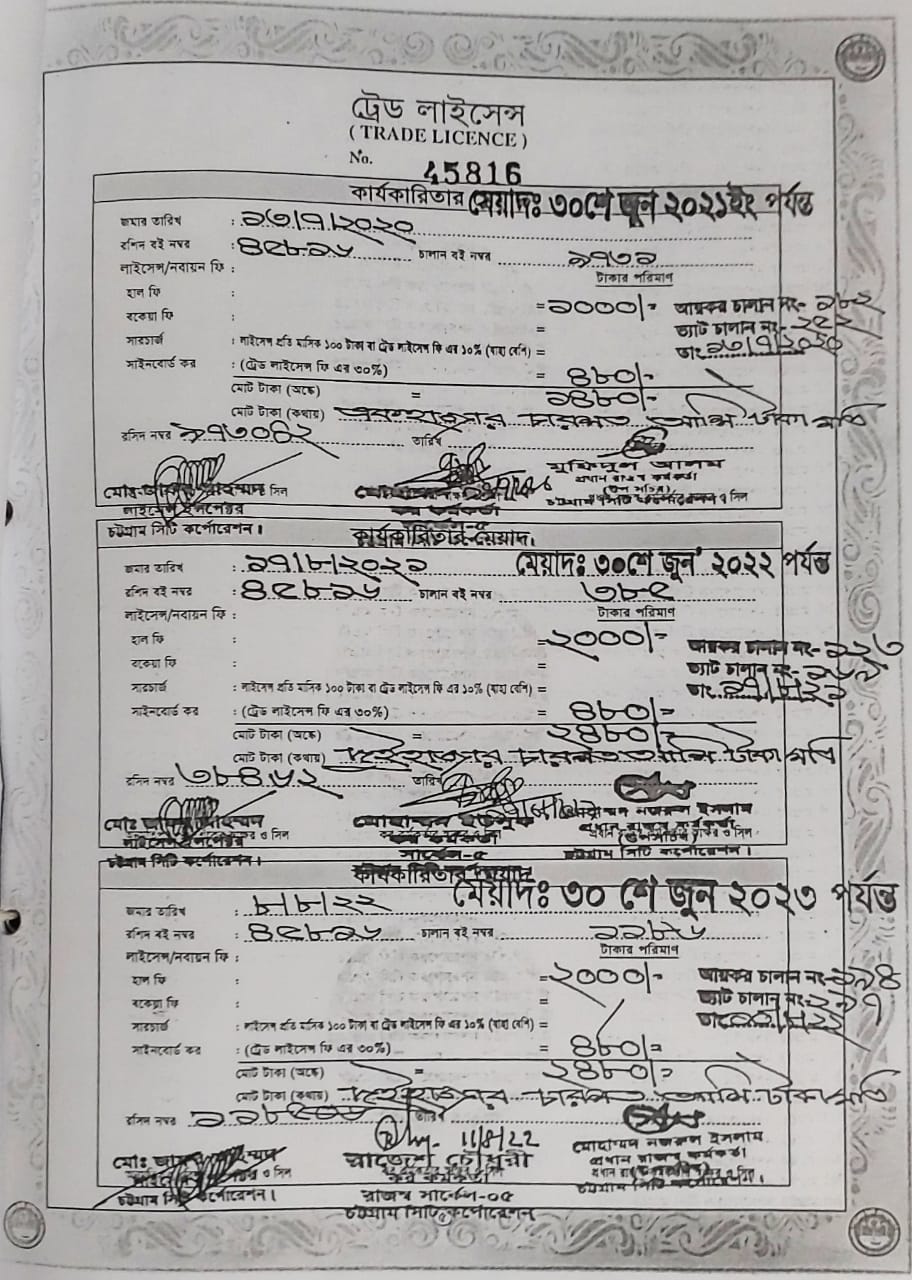 ট্রেড লাইসেন্স
( TRADE LICENCE )
No. 45816
কার্যকারিতার মেয়াদঃ ৩০শে জুন ২০২১ইং পর্যন্ত
জমার তারিখ : ১৩/৭/২০২০
রশিদ বই নম্বর : ৪৫৮১৬ চালান বই নম্বর ১৭৩১
লাইসেন্স/নবায়ন ফি : টাকার পরিমাণ
হাল ফি : =১০০০/- আয়কর চালান নং- ১৮২
বকেয়া ফি : = ভ্যাট চালান নং- ২৫২
সারচার্জ : লাইসেন্স প্রতি মাসিক ১০০ টাকা বা ট্রেড লাইসেন্স ফি এর ১০% (যাহা বেশি) = তাং ১৩/৭/২০২০
সাইনবোর্ড কর : (ট্রেড লাইসেন্স ফি এর ৩০%) = ৪৮০/-
মোট টাকা (অংকে) = ১৪৮০/-
মোট টাকা (কথায়) একহাজার চারশত আশি টাকা মাত্র
রসিদ নম্বর তারিখ
লাইসেন্স ইন্সপেক্টর কর কর্মকর্তা প্রধান রাজস্ব কর্মকর্তা
চট্টগ্রাম সিটি কর্পোরেশন।
কার্যকারিতার মেয়াদ।
মেয়াদঃ ৩০শে জুন ২০২২ পর্যন্ত
জমার তারিখ : ১৭/৮/২০২১
রশিদ বই নম্বর : ৪৫৮১৬ চালান বই নম্বর ৩৮৫
লাইসেন্স/নবায়ন ফি : টাকার পরিমাণ
হাল ফি : =২০০০/- আয়কর চালান নং- ১২৩
বকেয়া ফি : = ভ্যাট চালান নং-
সারচার্জ : লাইসেন্স প্রতি মাসিক ১০০ টাকা বা ট্রেড লাইসেন্স ফি এর ১০% (যাহা বেশি) = তাং ১৭/৮/২১
সাইনবোর্ড কর : (ট্রেড লাইসেন্স ফি এর ৩০%) = ৪৮০/=
মোট টাকা (অংকে) = ২৪৮০/=
মোট টাকা (কথায়) দুইহাজার চারশত আশি টাকা মাত্র
রসিদ নম্বর ৩৮৪৬২ তারিখ
মোহাম্মদ নজরুল ইসলাম
লাইসেন্স ইন্সপেক্টর কর কর্মকর্তা প্রধান রাজস্ব কর্মকর্তা
সার্কেল-৫
চট্টগ্রাম সিটি কর্পোরেশন। চট্টগ্রাম সিটি কর্পোরেশন।
কার্যকারিতার মেয়াদ
মেয়াদঃ ৩০ শে জুন ২০২৩ পর্যন্ত
জমার তারিখ : ৮/৮/২২
রশিদ বই নম্বর : ৪৫৮১৬ চালান বই নম্বর ১১৮৬
লাইসেন্স/নবায়ন ফি : টাকার পরিমাণ
হাল ফি : =২০০০/- আয়কর চালান নং- ১৯৪
বকেয়া ফি : = ভ্যাট চালান নং- ২৯৭
সারচার্জ : লাইসেন্স প্রতি মাসিক ১০০ টাকা বা ট্রেড লাইসেন্স ফি এর ১০% (যাহা বেশি) = তাং
সাইনবোর্ড কর : (ট্রেড লাইসেন্স ফি এর ৩০%) = ৪৮০/=
মোট টাকা (অংকে) = ২৪৮০/=
মোট টাকা (কথায়) দুইহাজার চারশত আশি টাকা মাত্র
রসিদ নম্বর তারিখ
11/8/22 মোহাম্মদ নজরুল ইসলাম
চৌধুরী প্রধান রাজস্ব কর্মকর্তা
কর কর্মকর্তা
চট্টগ্রাম সিটি কর্পোরেশন। রাজস্ব সার্কেল-০৫ চট্টগ্রাম সিটি কর্পোরেশন।
চট্টগ্রাম সিটি কর্পোরেশন